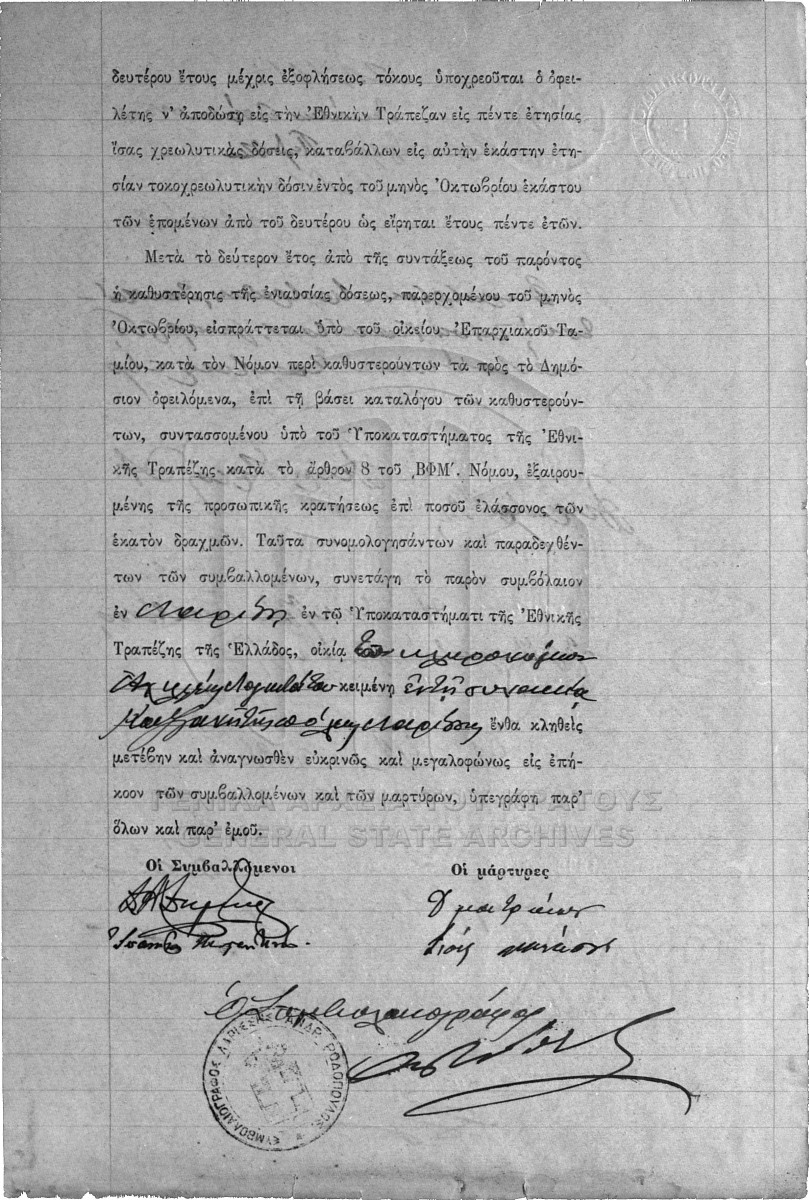 δευτέρου ἔτους μέχρις ἐξοφλήσεως τόκους ὑποχρεοῦται ὁ ὀφει-
λέτης ν' ἀποδώσῃ εἰς τὴν Ἐθνικὴν Τράπεζαν εἰς πέντε ἐτησίας
ἴσας χρεωλυτικὰς δόσεις, καταβάλλων εἰς αὐτὴν ἑκάστην ἐτη-
σίαν τοκοχρεωλυτικὴν δόσιν ἐντὸς τοῦ μηνὸς Ὀκτωβρίου ἑκάστου
τῶν ἑπομένων ἀπὸ τοῦ δευτέρου ὡς εἴρηται ἔτους πέντε ἐτῶν.
Μετὰ τὸ δεύτερον ἔτος ἀπὸ τῆς συντάξεως τοῦ παρόντος
ἡ καθυστέρησις τῆς ἐνιαυσίας δόσεως, παρερχομένου τοῦ μηνὸς
Ὀκτωβρίου, εἰσπράττεται ὑπὸ τοῦ οἰκείου Ἐπαρχιακοῦ Τα-
μίου, κατὰ τὸν Νόμον περὶ καθυστερούντων τὰ πρὸς τὸ Δημό-
σιον ὀφειλόμενα, ἐπὶ τῇ βάσει καταλόγου τῶν καθυστερούν-
των, συντασσομένου ὑπὸ τοῦ Ὑποκαταστήματος τῆς Ἐθνι-
κῆς Τραπέζης κατὰ τὸ ἄρθρον 8 τοῦ ͵ΒΦΜ΄. Νόμου, ἐξαιρου-
μένης τῆς προσωπικῆς κρατήσεως ἐπὶ ποσοῦ ἐλάσσονος τῶν
ἑκατὸν δραχμῶν. Ταῦτα συνομολογησάντων καὶ παραδεχθέν-
των τῶν συμβαλλομένων, συνετάγη τὸ παρὸν συμβόλαιον
ἐν Λαρίσῃ ἐν τῷ Ὑποκαταστήματι τῆς Ἐθνικῆς
Τραπέζης τῆς Ἑλλάδος, οἰκίᾳ τῶν κληρονόμων
κειμένῃ ἐν τῇ συνοικίᾳ
Λαρίσσης ἔνθα κληθεὶς
μετέβην καὶ ἀναγνωσθὲν εὐκρινῶς καὶ μεγαλοφώνως εἰς ἐπή-
κοον τῶν συμβαλλομένων καὶ τῶν μαρτύρων, ὑπεγράφη παρ'
ὅλων καὶ παρ' ἐμοῦ.
ΓΕΝΙΚΑ ΑΡΧΕΙΑ ΤΟΥ ΚΡΑΤΟΥΣ
GENERAL STATE ARCHIVES
Οἱ Συμβαλλόμενοι
Οἱ μάρτυρες
Ὁ Συμβολαιογράφος
ΣΥΜΒΟΛΑΙΟΓΡΑΦΟΣ ΛΑΡΙΣΣΗΣ ΑΝΔΡ. ΡΟΔΟΠΟΥΛΟΣ